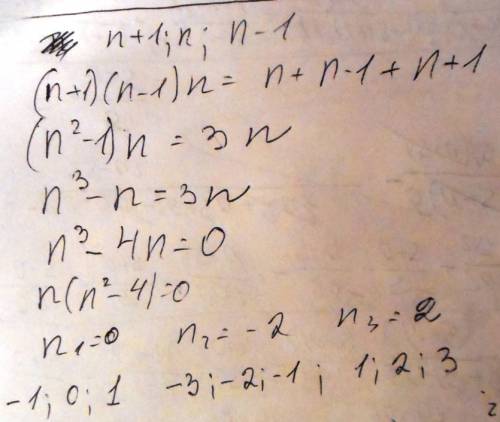 n+1; n; n-1
(n+1)(n-1)n = n+n-1+n+1
(n²-1)n = 3n
n³-n=3n
n³-4n=0
n(n²-4)=0
n₁=0 n₂=-2 n₃=2
-1; 0; 1 -3; -2; -1; 1; 2; 3